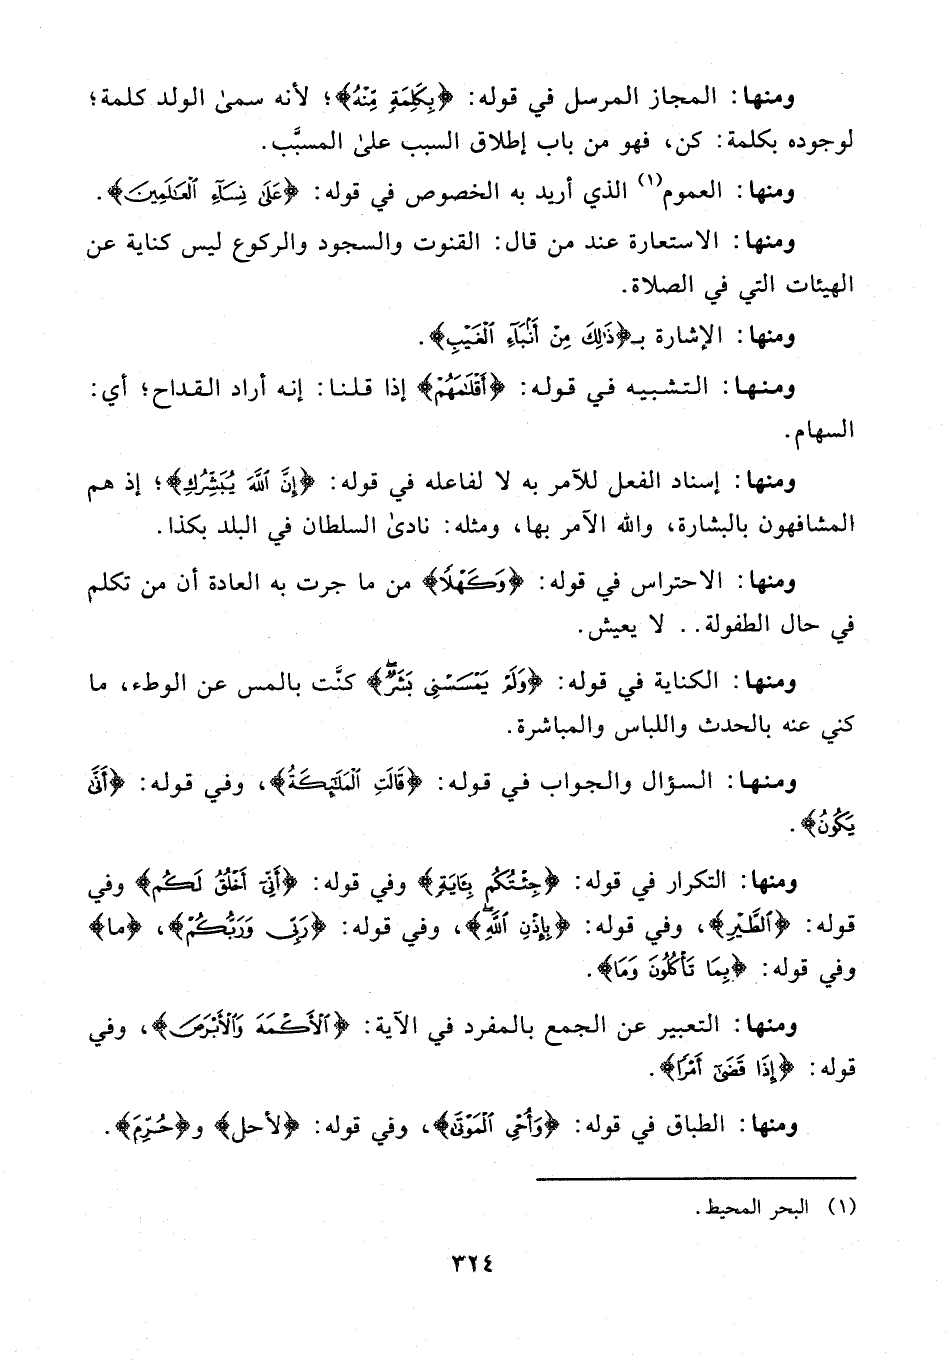 ومنها: المجاز المرسل في قوله: ﴿بِكَلِمَةٍ مِّنْهُ﴾؛ لأنه سمىٰ الولد كلمة؛
لوجوده بكلمة: كن، فهو من باب إطلاق السبب علىٰ المسبَّب.
ومنها: العموم(١) الذي أريد به الخصوص في قوله: ﴿عَلَىٰ نِسَآءِ ٱلْعَـٰلَمِينَ﴾.
ومنها: الاستعارة عند من قال: القنوت والسجود والركوع ليس كناية عن
الهيئات التي في الصلاة.
ومنها: الإشارة بـ﴿ذَٰلِكَ مِنْ أَنۢبَآءِ ٱلْغَيْبِ﴾.
ومنها: التشبيه في قوله: ﴿أَقْلَـٰمَهُمْ﴾ إذا قلنا: إنه أراد القداح؛ أي:
السهام.
ومنها: إسناد الفعل للآمر به لا لفاعله في قوله: ﴿إِنَّ ٱللَّهَ يُبَشِّرُكِ﴾؛ إذ هم
المشافهون بالبشارة، والله الآمر بها، ومثله: نادىٰ السلطان في البلد بكذا.
ومنها: الاحتراس في قوله: ﴿وَكَهْلًا﴾ من ما جرت به العادة أن من تكلم
في حال الطفولة.. لا يعيش.
ومنها: الكناية في قوله: ﴿وَلَمْ يَمْسَسْنِى بَشَرٌۖ﴾ كنَّت بالمس عن الوطء، ما
كني عنه بالحدث واللباس والمباشرة.
ومنها: السؤال والجواب في قوله: ﴿قَالَتِ ٱلْمَلَـٰٓئِكَةُ﴾، وفي قوله: ﴿أَنَّىٰ
يَكُونُ﴾.
ومنها: التكرار في قوله: ﴿جِئْتُكُم بِـَٔايَةٍ﴾ وفي قوله: ﴿أَنِّىٓ أَخْلُقُ لَكُم﴾ وفي
قوله: ﴿ٱلطَّيْرِ﴾، وفي قوله: ﴿بِإِذْنِ ٱللَّهِۖ﴾، وفي قوله: ﴿رَبِّى وَرَبُّكُمْ﴾، ﴿ما﴾
وفي قوله: ﴿بِمَا تَأْكُلُونَ وَمَا﴾.
ومنها: التعبير عن الجمع بالمفرد في الآية: ﴿ٱلْأَكْمَهَ وَٱلْأَبْرَصَ﴾، وفي
قوله: ﴿إِذَا قَضَىٰٓ أَمْرًا﴾.
ومنها: الطباق في قوله: ﴿وَأُحْىِ ٱلْمَوْتَىٰ﴾، وفي قوله: ﴿لأحل﴾ و﴿حُرِّمَ﴾.
(١) البحر المحيط.
٣٢٤